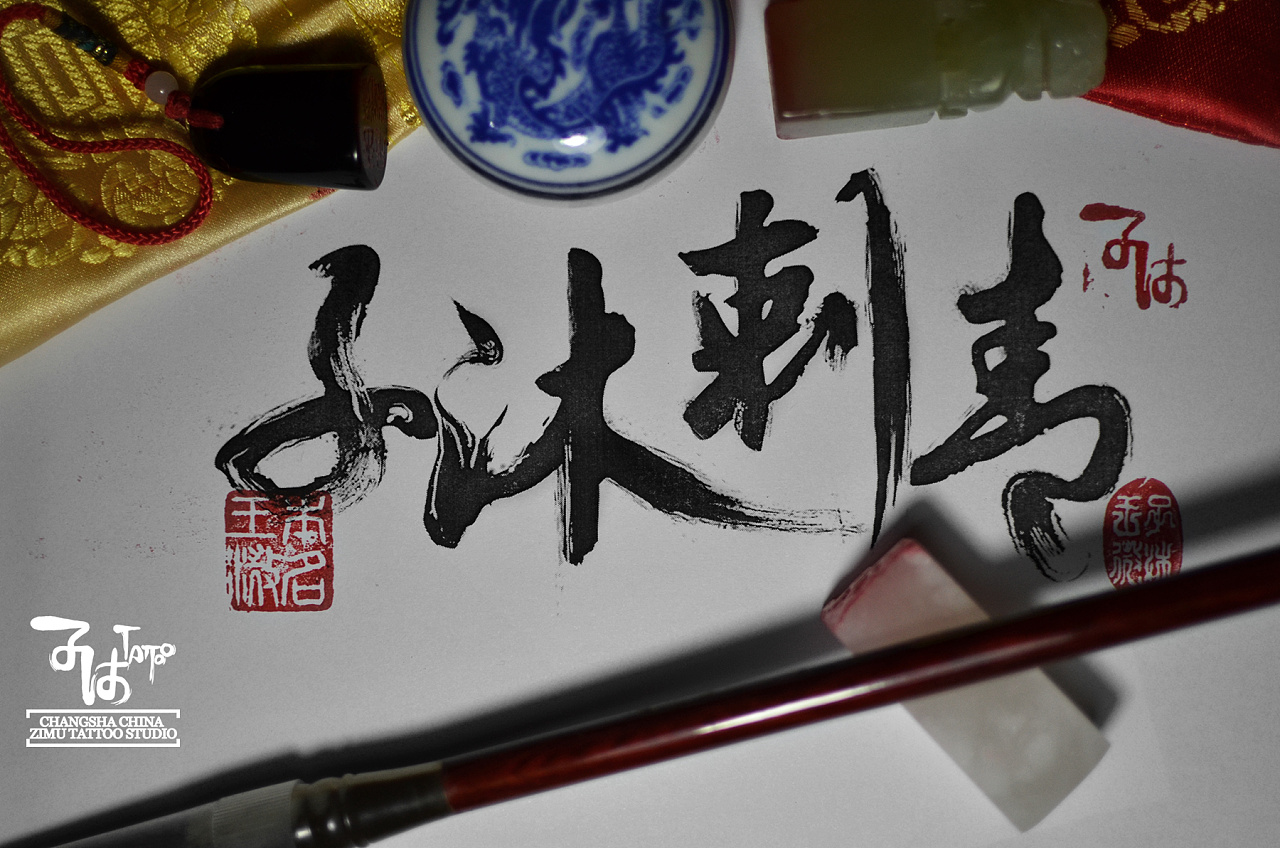 子沐刺青
子沐
本名
子沐
TATToo
CHANGSHA CHINA
ZIMU TATTOO STUDIO